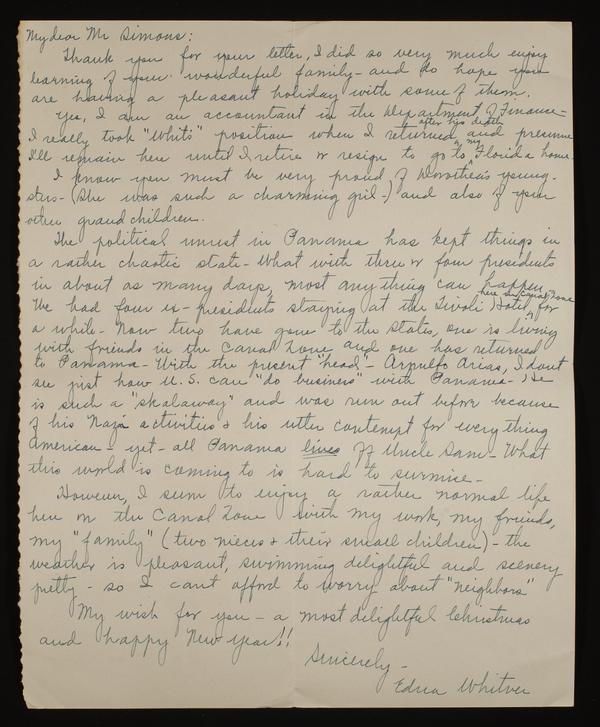 My dear Mr Simons:
Thank you for your letter, I did so very much enjoy
learning of your wonderful family - and do hope you
are having a pleasant holiday with some of them.
Yes, I am an accountant in the Department of Finance -
I really took "Whit's" position when I returned after his death and presume
I'll remain here until I retire or resign to go to my Florida home.
I know you must be very proud of Dorothea's young-
sters - (She was such a charming girl -) and also of your
other grandchildren.
The political unrest in Panama has kept things in
a rather chaotic state - What with three or four presidents
in about as many days, most anything can happen
We had four ex-presidents staying at the Tivoli Hotel here in Canal Zone for
a while - Now two have gone to the States, one is living
with friends in the Canal Zone and one has returned
to Panama - With the present "head" - Arnulfo Arias, I dont
see just how U.S. can "do business" with Panama - He
is such a "skalaway" and was run out before because
of his Nazi activities & his utter contempt for everything
American - yet - all Panama lives off Uncle Sam - What
this world is coming to is hard to surmise -
However, I seem to enjoy a rather normal life
here on the Canal Zone with my work, my friends,
my "family" (two nieces & their small children) - the
weather is pleasant, swimming delightful and scenery
pretty - so I cant afford to worry about "neighbors"
My wish for you - a most delightful Christmas
and happy New Year!!
Sincerely -
Edna Whitver